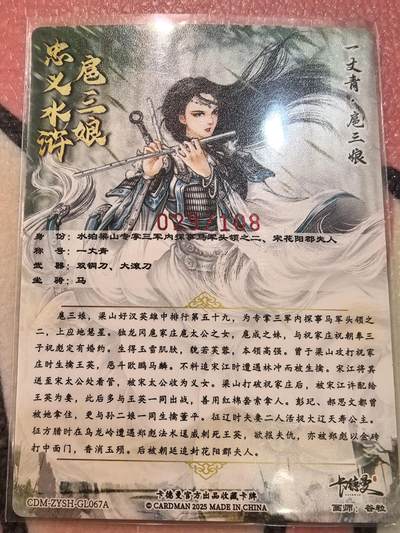 忠义水浒
扈三娘
一丈青·扈三娘
023/108
身 份：水泊梁山专掌三军内探事马军头领之二、宋花阳郡夫人
称 号：一丈青
武 器：双铜刀、大滚刀
坐 骑：马
扈三娘，梁山好汉英雄中排行第五十九，为专掌三军内探事马军头领之
二，上应地慧星。独龙冈扈家庄扈太公之女，扈成之妹，与祝家庄祝朝奉三
子祝彪定有婚约。生得玉雪肌肤，貌若芙蓉，本领高强。曾于梁山攻打祝家
庄时生擒王英，恶斗欧鹏马麟。不料追宋江时遭遇林冲而被生擒。宋江将其
送至宋太公处看管，被宋太公收为义女。梁山打破祝家庄后，被宋江许配给
王英为妻，此后多与王英一同出战，善用红棉套索拿人。彭玘、郝思文都曾
被她拿住，更与孙二娘一同生擒董平。征辽时夫妻二人活捉大辽天寿公主。
征方腊时在乌龙岭遭遇郑彪法术逞威刺死王英，欲报夫仇，亦被郑彪以金砖
打中面门，香消玉殒。后被朝廷追封花阳郡夫人。
CDM-ZYSH-GL067A
卡德曼官方出品收藏卡牌
© CARDMAN 2025 MADE IN CHINA
卡德曼
画师：谷粒